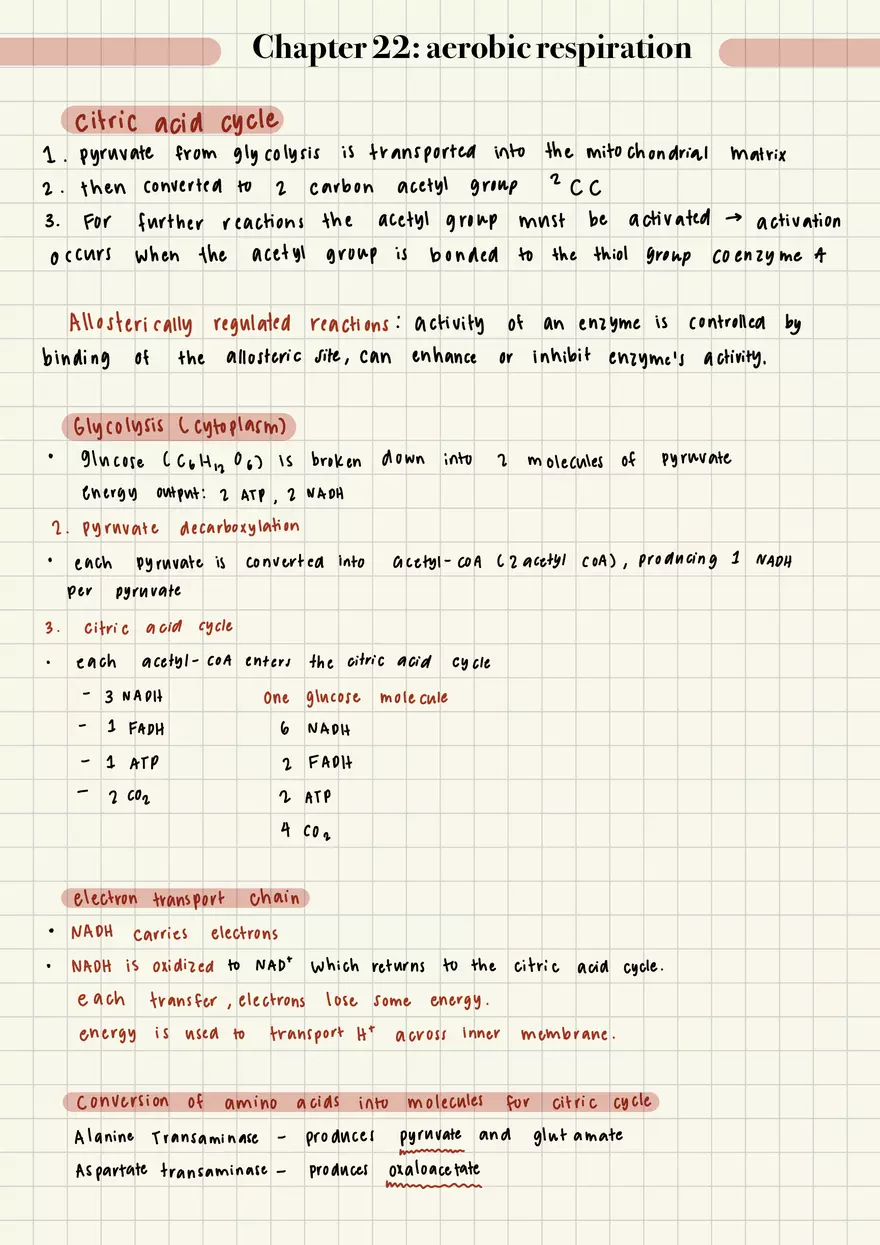 Chapter 22: aerobic respiration
citric acid cycle
1. pyruvate from glycolysis is transported into the mitochondrial matrix
2. then converted to 2 carbon acetyl group ² CC
3. For further reactions the acetyl group must be activated → activation
occurs when the acetyl group is bonded to the thiol group coenzyme A
Allosterically regulated reactions: activity of an enzyme is controlled by
binding of the allosteric site, can enhance or inhibit enzyme's activity.
Glycolysis (cytoplasm)
• glucose (C₆H₁₂O₆) is broken down into 2 molecules of pyruvate
Energy output: 2 ATP, 2 NADH
2. pyruvate decarboxylation
• each pyruvate is converted into acetyl-coA (2 acetyl coA), producing 1 NADH
per pyruvate
3. citric acid cycle
• each acetyl-coA enters the citric acid cycle
- 3 NADH One glucose molecule
- 1 FADH 6 NADH
- 1 ATP 2 FADH
- 2 CO₂ 2 ATP
4 CO₂
electron transport chain
• NADH carries electrons
• NADH is oxidized to NAD⁺ which returns to the citric acid cycle.
each transfer, electrons lose some energy.
energy is used to transport H⁺ across inner membrane.
Conversion of amino acids into molecules for citric cycle
Alanine Transaminase - produces pyruvate and glutamate
Aspartate transaminase - produces oxaloacetate